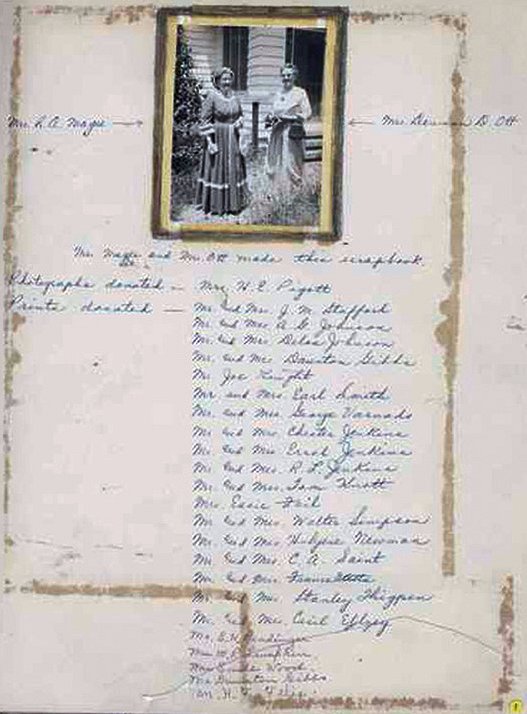 Mrs. R. A. Magee
Mrs. D. Ott
Mrs. Magee and Mrs. Ott made this scrapbook.
Photographs donated — Mrs. H. E. Pigott
Prints donated — Mr. and Mrs. J. M. Stafford
Mr. and Mrs. A. G. Johnson
Mr. and Mrs. Delos Johnson
Mr. and Mrs. Dawnton Gibbs
Mr. Joe Knight
Mr. and Mrs. Earl Smith
Mr. and Mrs. George Varnado
Mr. and Mrs. Chester Jenkins
Mr. and Mrs. Errol Jenkins
Mr. and Mrs. R. L. Jenkins
Mr. and Mrs. Tom Knott
Mrs. Essie Fail
Mr. and Mrs. Walter Simpson
Mr. and Mrs. Newman
Mr. and Mrs. C. A. Saint
Mr. and Mrs.
Mr. and Mrs. Stanley Thigpen
Mr. and Mrs. Cecil Elzey
Mrs.
Wood
Gibbs